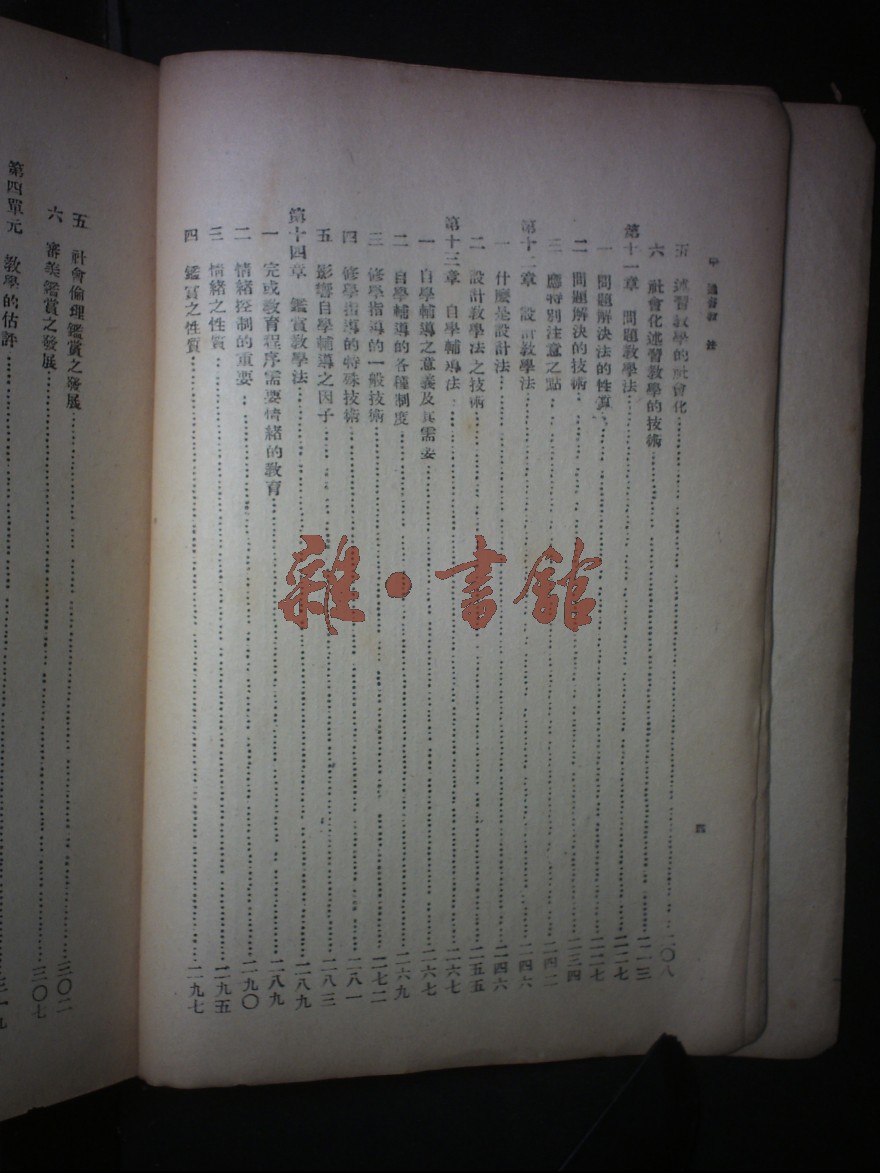 五 述習教學的社會化 二〇八
六 社會化述習教學的技術 二一三
第十一章 問題教學法 二二七
一 問題解決法的性質 二二七
二 問題解決的技術 二三四
三 應特別注意之點 二四二
第十二章 設計教學法 二四六
一 什麼是設計法 二四六
二 設計教學法之技術 二五五
第十三章 自學輔導法 二六七
一 自學輔導之意義及其需要 二六七
二 自學輔導的各種制度 二六九
三 修學指導的一般技術 二七二
四 修學指導的特殊技術 二八一
五 影響自學輔導之因子 二八三
第十四章 鑑賞教學法 二八九
一 完成教育程序需要情緒的教育 二八九
二 情緒控制的重要 二九〇
三 情緒之性質 二九五
四 鑑賞之性質 二九七
四
五 社會倫理鑑賞之發展 三〇二
六 審美鑑賞之發展 三〇七
第四單元 教學的估評 三一九
雜·書館